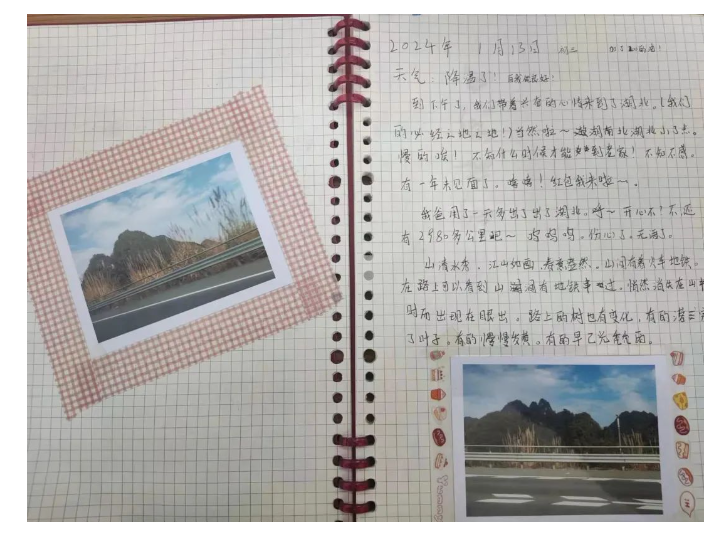 2024年 1月13日
天气：降温了！
到下午了，我们带着兴奋的心情来到了湖北。（我们
的必经之地之地！）当然啦～ 湖南北湖北小了点。
慢的唉！不知什么时候才能到老家！不知不觉
有一年未见面了。嘻嘻！红包我来啦～。
我爸用了一天多出了出了湖北。呼～开心不！不远
有2980多公里吧～ 呜呜呜。伤心了。无语了。
山清水秀，江山如画，春意盎然。山间有着火车地铁。
在路上可以看到山 间有地铁 过，悄然消失在山
时而出现在眼出，路上的树也有变化，有的落
了叶子。有的慢慢发黄。有的早已光秃秃的。